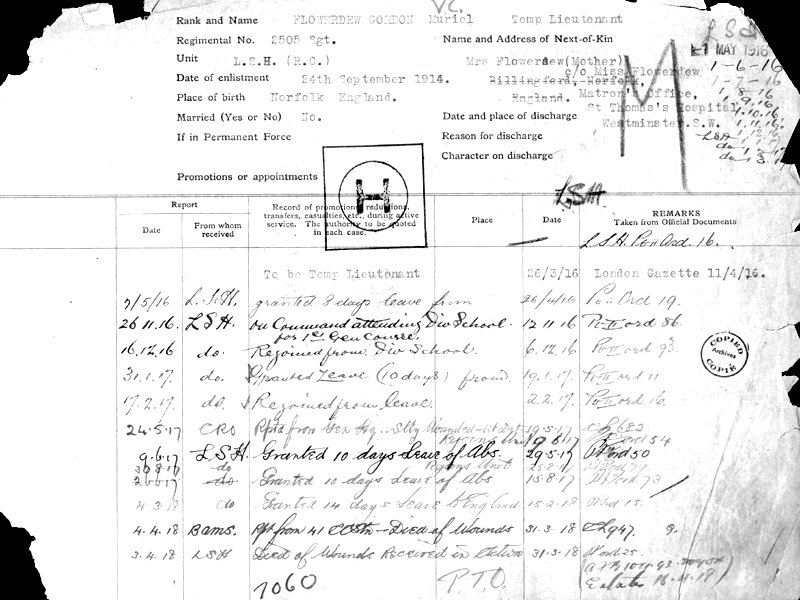 V.C.
Rank and Name FLOWERDEW GORDON Muriel Temp Lieutenant
Regimental No. 2505 Sgt. Name and Address of Next-of-Kin
Unit L.S.H. (R.C.) Mrs Flowerdew(Mother)
c/o Miss Flowerdew
Date of enlistment 24th September 1914. Billingford, Norfolk,
Matron's Office,
Place of birth Norfolk England. England.
St Thomas's Hospital
Married (Yes or No) No. Date and place of discharge
Westminster.S.W.
If in Permanent Force Reason for discharge
Character on discharge
Promotions or appointments
LSH
1 MAY 1916
1-6-16
1-7-16
1.8-16
1.9.16
1.10.16
1.11.16
LSH 1.12.16
do 1.2.17
do 1.3.17
M
H
LSH
Report
Date
From whom received
Record of promotions, reductions, transfers, casualties, etc., during active service. The authority to be quoted in each case.
Place
Date
REMARKS
Taken from Official Documents
LSH. Pt II Ord 16.
To be Temp Lieutenant 26/3/16 London Gazette 11/4/16.
7/5/16 L.S.H. granted 8 days leave from 26/4/16 Pt II Ord 19.
26.11.16 LSH. On Command attending Div School. 12.11.16 Pt II ord 86.
for 1st Gen Course.
16.12.16 do. Rejoined from Div School. 6.12.16 Pt II ord 93
31.1.17. do. Granted Leave (10 days) from 19.1.17. Pt II ord 11
17.2.17. do. Rejoined from leave. 2.2.17. Pt II ord 16.
24.5.17 CRO Wounded 19.5.17 682
54
9.6.17 LSH Granted 10 days Leave of Abs. 29.5.17 ord 50
do Unit
do Granted 10 days Leave of Abs 15.8.17 ord 73
4.3.18 do Granted 14 days Leave to England 15.2.18 ord 15.
4.4.18 Bams. Rpt from 41 CCStn - Died of Wounds 31.3.18 CL947. 9.
3.4.18 LSH Died of Wounds Received in Action 31.3.18 ord 25.
Estates 16.11.18)
7060 P.T.O.
COPIED
Archives
COPIÉ